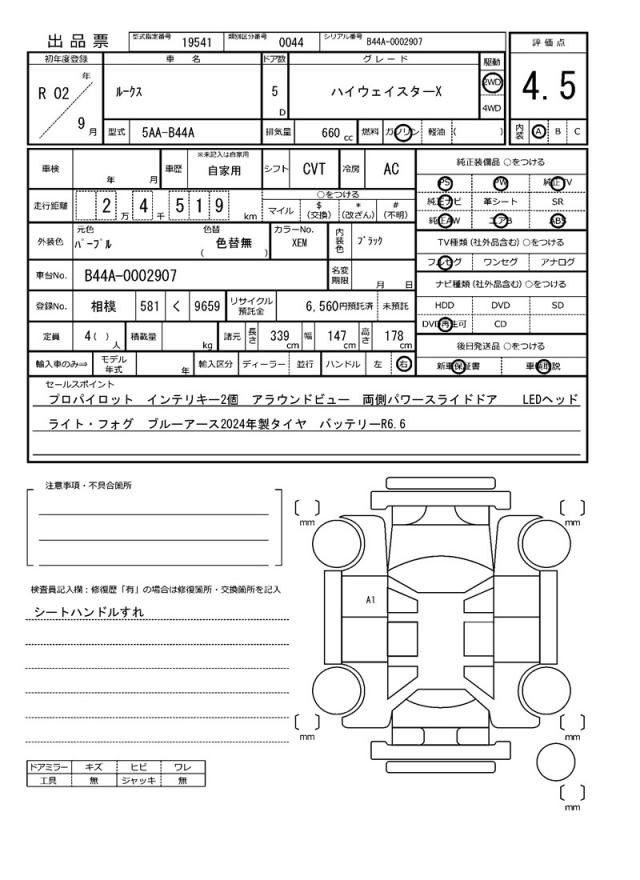 出品票 型式指定番号 19541 類別区分番号 0044 シリアル番号 B44A-0002907
評価点
4.5
内装 A B C
初年度登録 車名 ドア数 グレード 駆動
R 02 年 9 月 ルークス 5 D ハイウェイスターX 2WD 4WD
型式 5AA-B44A 排気量 660 cc 燃料 ガソリン 軽油 ( )
車検 年 月 車歴 ※未記入は自家用 自家用 シフト CVT 冷房 AC
走行距離 2 万 4 千 5 1 9 km ○をつける
マイル $(交換) *(改ざん) #(不明)
外装色 元色 パープル 色替 ( 色替無 ) カラーNo. XEM 内装色 ブラック
車台No. B44A-0002907 名変期限 月 日
登録No. 相模 581 く 9659 リサイクル預託金 6,560円預託済 未預託
定員 4( ) 人 積載量 kg 諸元 長さ 339 cm 幅 147 cm 高さ 178 cm
輸入車のみ⇒ モデル年式 年 輸入区分 ディーラー 並行 ハンドル 左 右
純正装備品 ○をつける
PS PW 純正TV
純正ナビ 革シート SR
純正AW エアB ABS
TV種類(社外品含む) ○をつける
フルセグ ワンセグ アナログ
ナビ種類(社外品含む) ○をつける
HDD DVD SD
DVD再生可 CD
後日発送品 ○をつける
新車保証書 車輌取説
セールスポイント
プロパイロット インテリキー2個 アラウンドビュー 両側パワースライドドア LEDヘッド
ライト・フォグ ブルーアース2024年製タイヤ バッテリーR6.6
注意事項・不具合箇所
検査員記入欄：修復歴「有」の場合は修復箇所・交換箇所を記入
シートハンドルすれ
ドアミラー キズ ヒビ ワレ
工具 無 ジャッキ 無
[ ] mm
[ ] mm
A1
[ ] mm
[ ] mm
[ ] mm